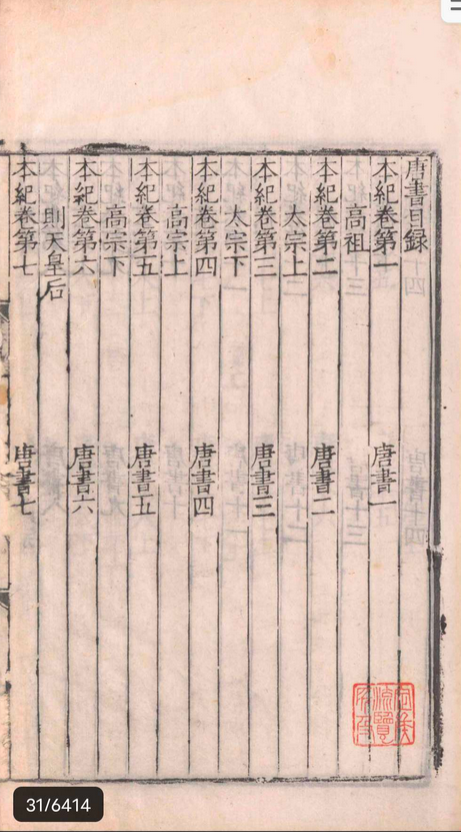 唐書目録
本紀卷第一 唐書一
高祖
本紀卷第二 唐書二
太宗上
本紀卷第三 唐書三
太宗下
本紀卷第四 唐書四
高宗上
本紀卷第五 唐書五
高宗下
本紀卷第六 唐書六
則天皇后
本紀卷第七 唐書七
31/6414